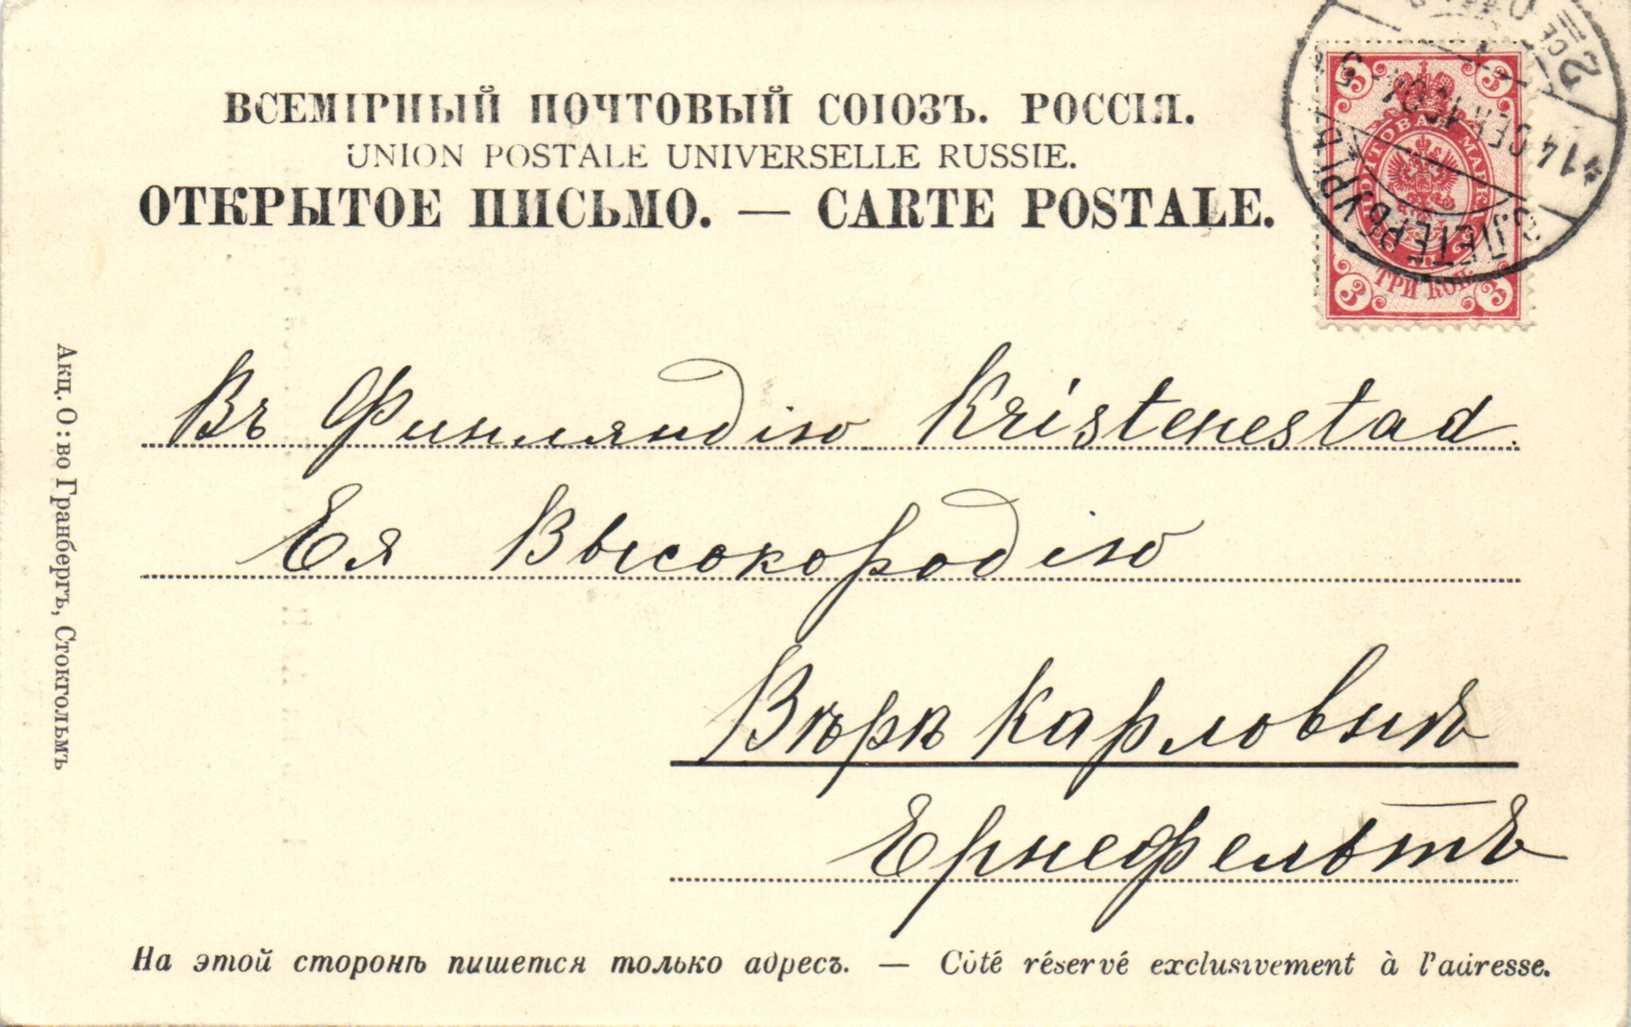 ВСЕМІРНЫЙ ПОЧТОВЫЙ СОЮЗЪ. РОССІЯ.
UNION POSTALE UNIVERSELLE RUSSIE.
ОТКРЫТОЕ ПИСЬМО. — CARTE POSTALE.
3 3
ПОЧТОВАЯ МАРКА
ТРИ КОП.
3 3
14 СЕН
Въ Финляндію Kristenestad.
Ея Высокородію
Вѣрѣ Карловнѣ
Ернефельтъ
Акц. О:во Гранбергъ, Стокгольмъ
На этой сторонѣ пишется только адресъ. — Côté réservé exclusivement à l'adresse.